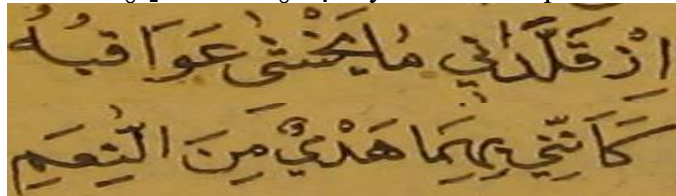 اِذْ قَلَّدَانِي مَا يُخْشَى عَوَاقِبُهُ
كَاَنَّنِي بِهِمَا هَدْيٌ مِنَ النَّعَمِ